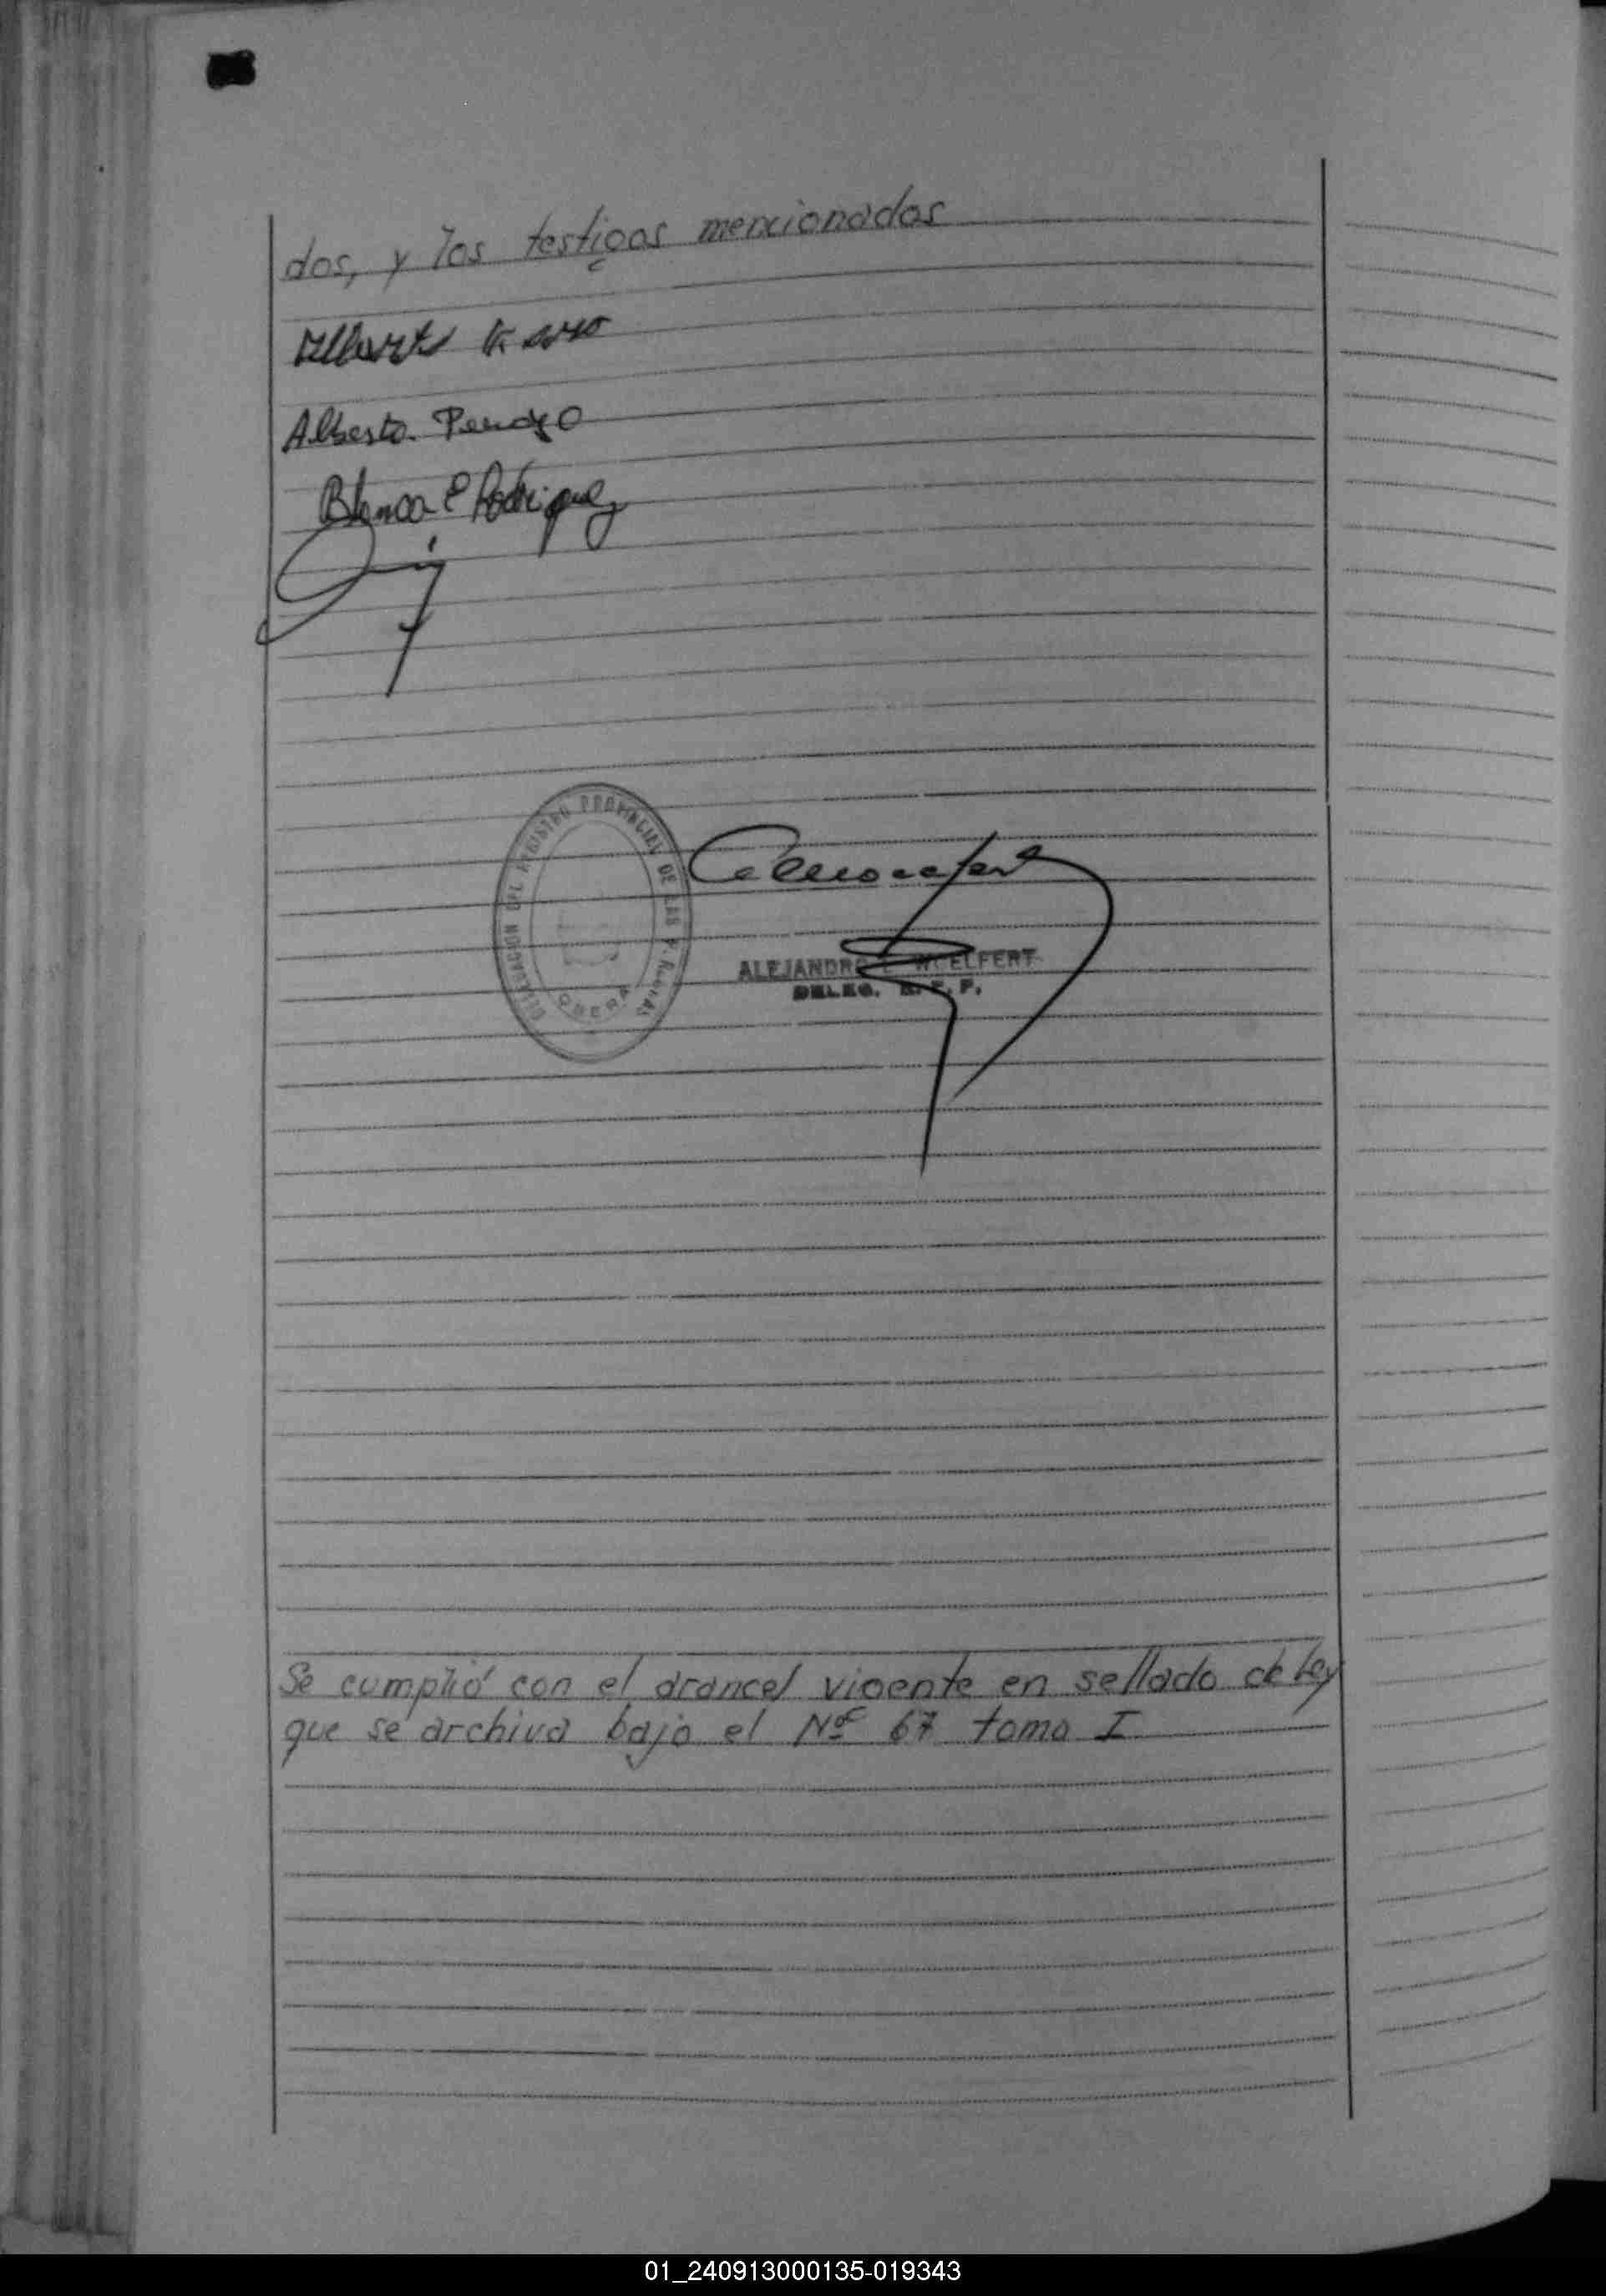 dos, y los testigos mencionados
Alberto
Blanca E Rodriguez
DELEGACION DEL REGISTRO PROVINCIAL DE LAS P.
OBERA
ALEJANDRO E. WOELFERT
DELEG. R. P. P.
Se cumplió con el arancel vigente en sellado de Ley
que se archiva bajo el Nº 67 tomo I
01_240913000135-019343